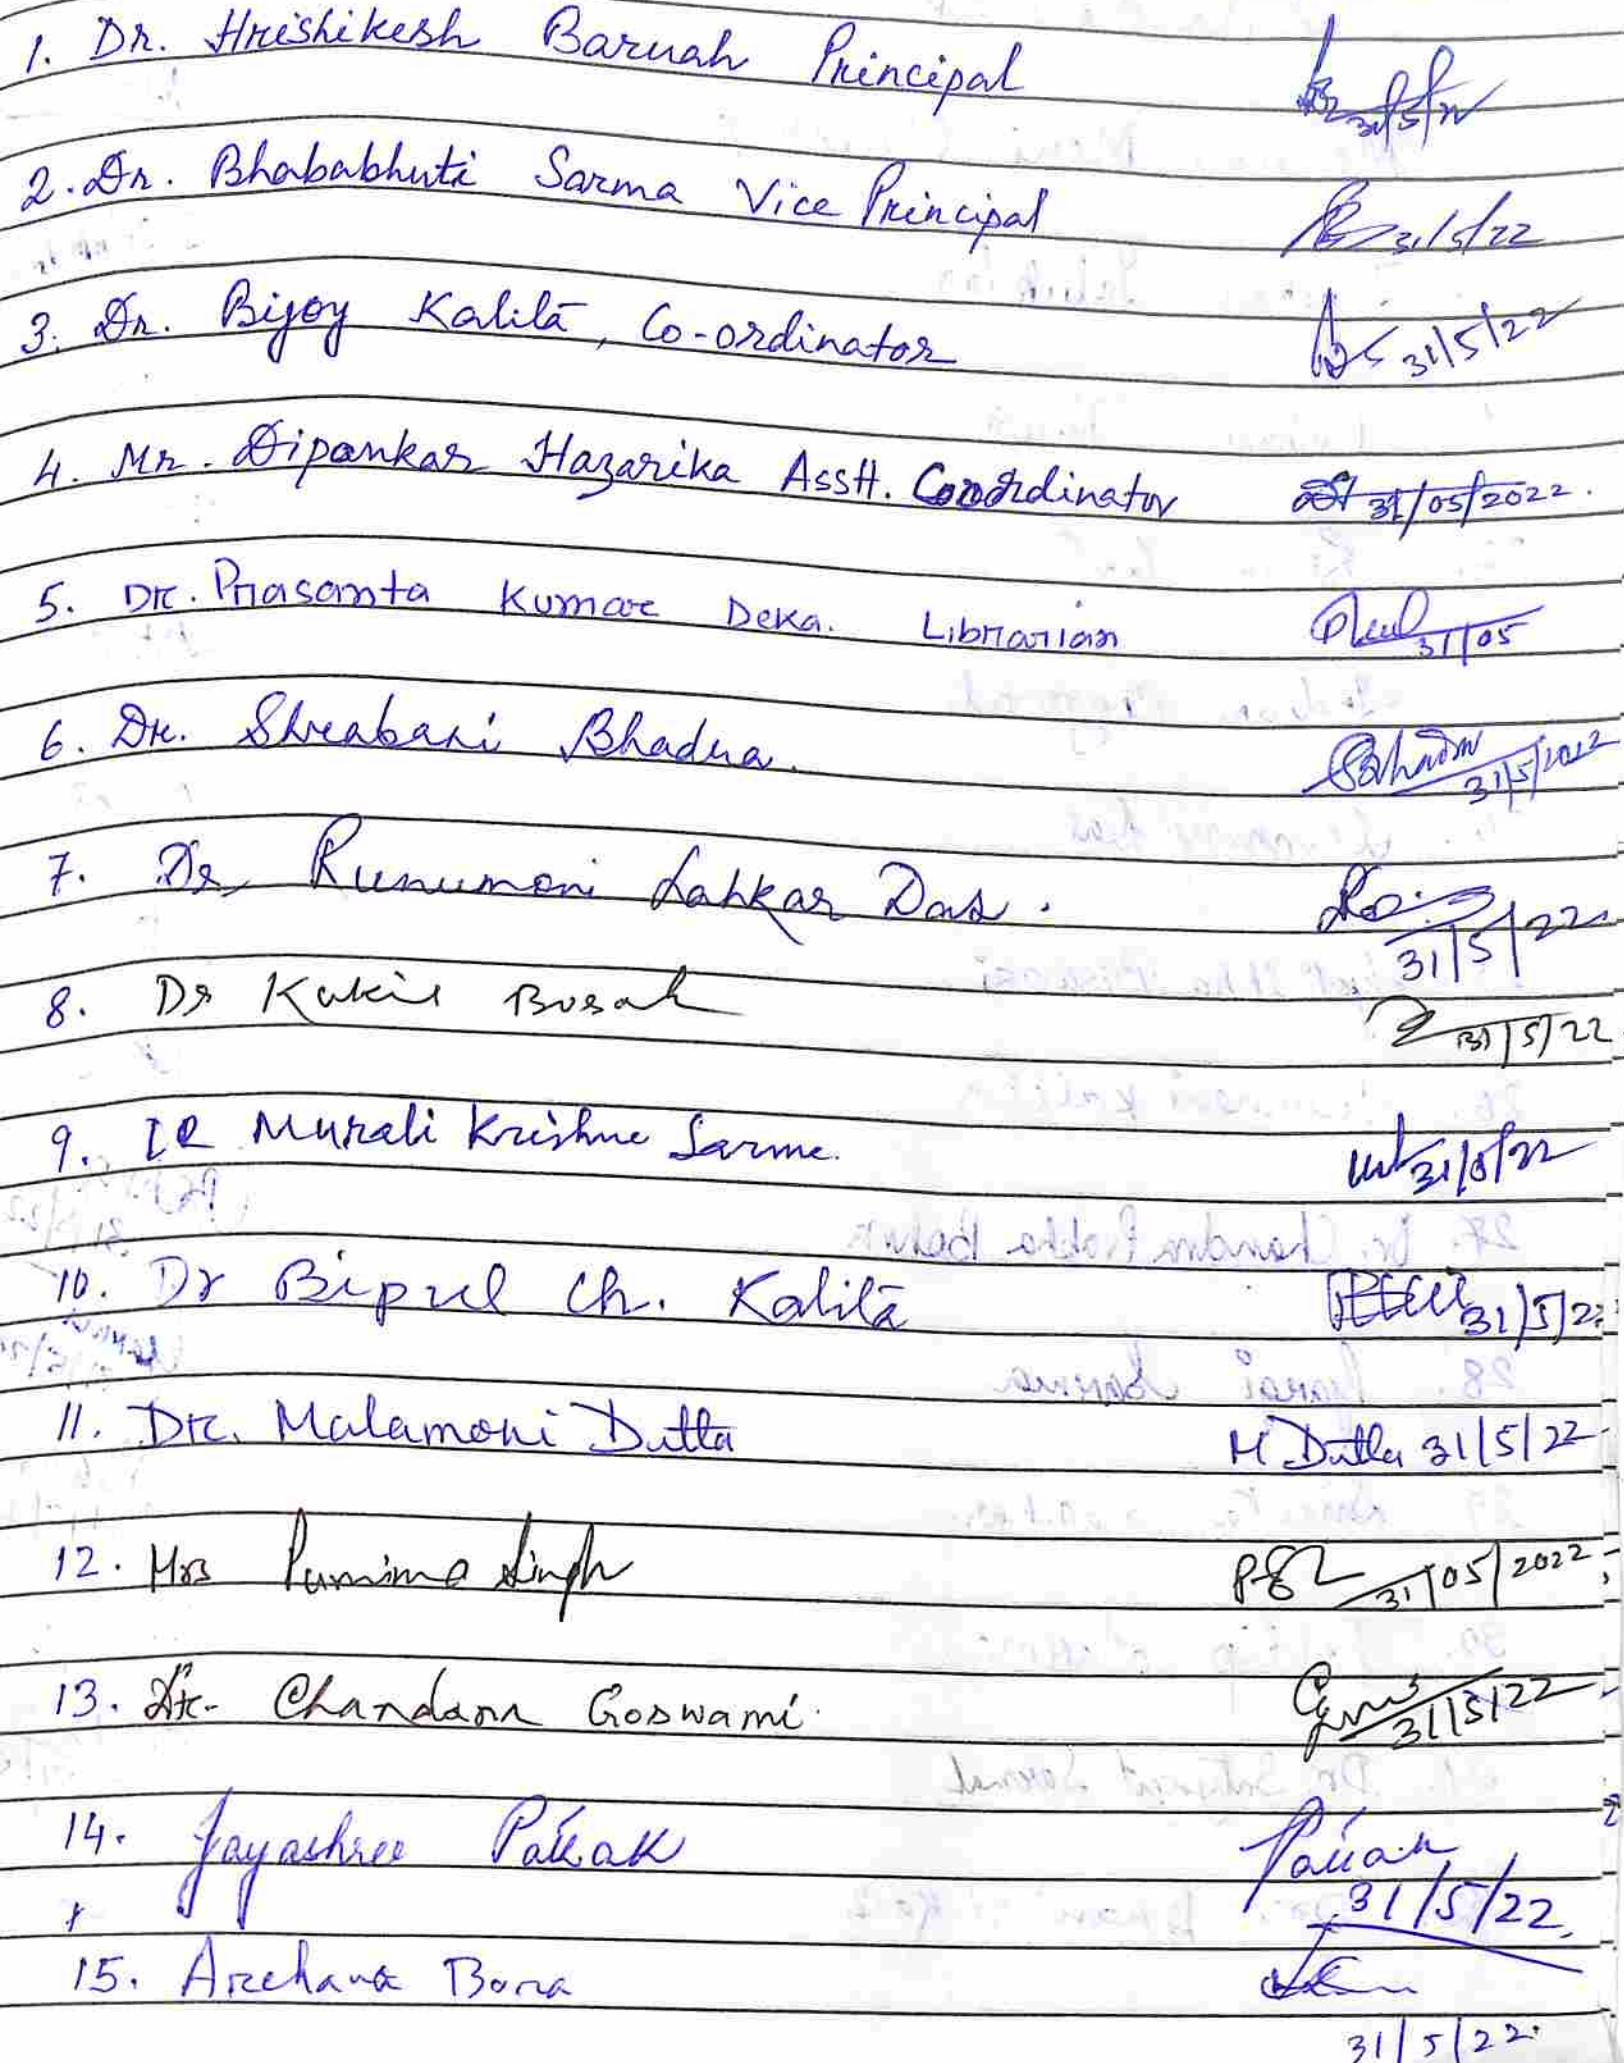 1. Dr. Hrishikesh Baruah Principal 31/5/22
2. Dr. Bhababhuti Sarma Vice Principal 31/5/22
3. Dr. Bijoy Kalita, Co-ordinator 31/5/22
4. Mr. Dipankar Hazarika Asstt. Coordinator 31/05/2022.
5. Dr. Prasanta Kumar Deka. Librarian 31/05
6. Dr. Shreabani Bhadra. 31/5/2022
7. Dr Runumoni Lahkar Das. 31/5/22
8. Dr Kukil Borah 31/5/22
9. Murali Krishna Sarma. 31/5/22
10. Dr Bipul Ch. Kalita 31/5/22
11. Dr. Malamoni Dutta M Dutta 31/5/22
12. Mrs Purnima Singh 31/05/2022
13. Dr. Chandana Goswami. 31/5/22
14. Jayashree Pathak Pathak
31/5/22.
15. Archana Bora
31/5/22.